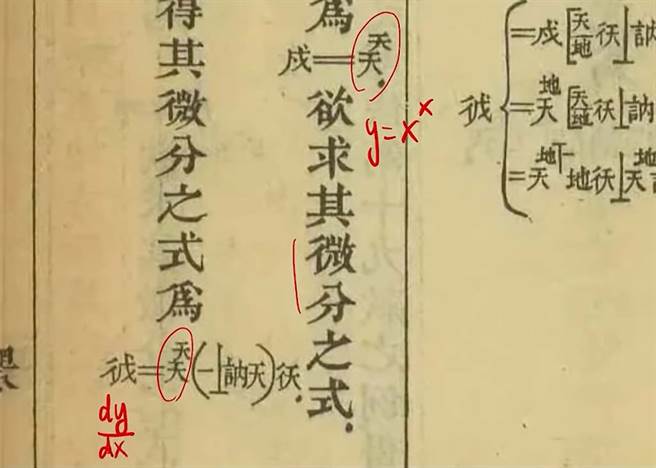 =戍[天/地 彳天]⊥訥
彳戍 { =天^地[天/地 彳天]⊥訥
=天^(地⊤一) 地彳天⊥天^地
爲
戍=天^天.
欲求其微分之式.
y=x^x
得其微分之式爲
彳戍=天^天(一⊥訥天)彳天.
dy/dx